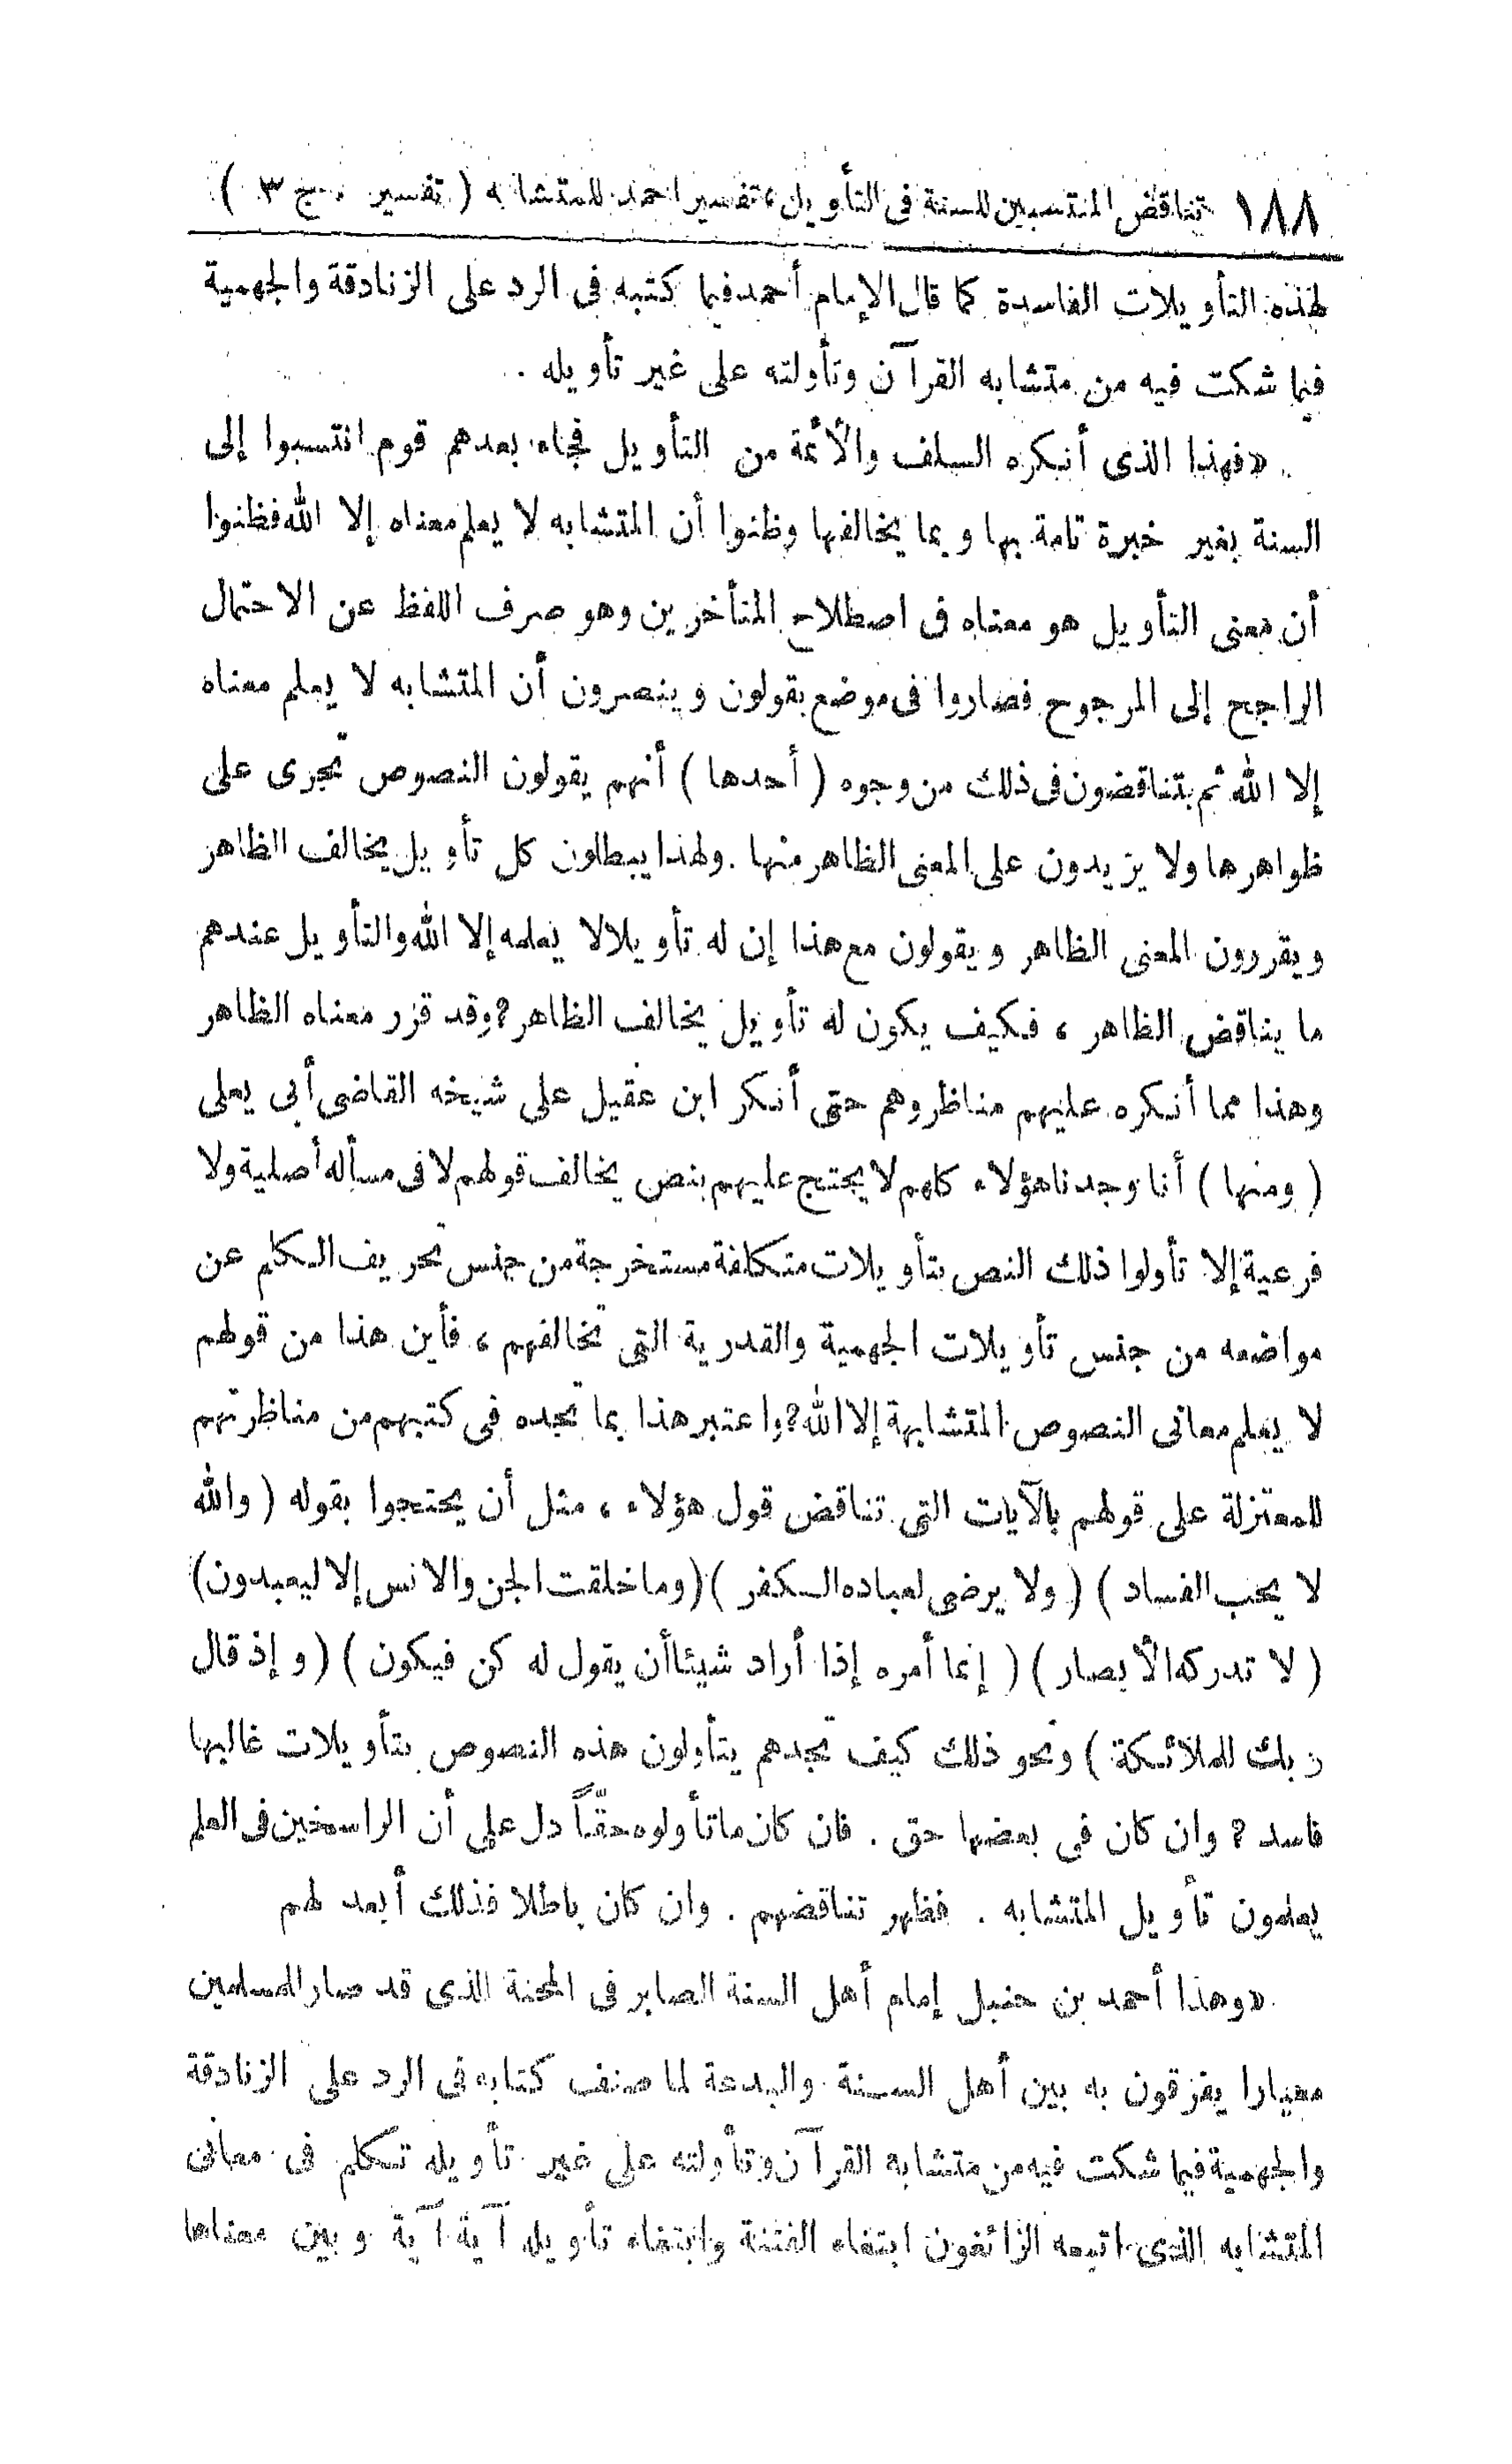 ١٨٨ تناقض المنتسبين للسنة في التأويل، تفسير احمد للمتشابه ( تفسير . ج ٣ )
لهذه التأويلات الفاسدة كما قال الإمام أحمد فيما كتبه في الرد على الزنادقة والجهمية
فيما شكت فيه من متشابه القرآن وتأولته على غير تأويله .
«فهذا الذى أنكره السلف والأئمة من التأويل فجاء بعدهم قوم انتسبوا إلى
السنة بغير خبرة تامة بها وبما يخالفها وظنوا أن المتشابه لا يعلم معناه إلا الله فظنوا
أن معنى التأويل هو معناه في اصطلاح المتأخرين وهو صرف اللفظ عن الاحتمال
الراجح إلى المرجوح فصاروا في موضع يقولون وينصرون أن المتشابه لا يعلم معناه
إلا الله ثم يتناقضون في ذلك من وجوه ( أحدها ) أنهم يقولون النصوص تجرى على
ظواهرها ولا يزيدون على المعنى الظاهر منها . ولهذا يبطلون كل تأويل يخالف الظاهر
ويقررون المعنى الظاهر ويقولون مع هذا إن له تأويلا لا يعلمه إلا الله والتأويل عندهم
ما يناقض الظاهر ، فكيف يكون له تأويل يخالف الظاهر ؟ وقد قرر معناه الظاهر
وهذا مما أنكره عليهم مناظروهم حتى أنكر ابن عقيل على شيخه القاضى أبى يعلى
( ومنها ) أنا وجدنا هؤلاء كلهم لا يحتج عليهم بنص يخالف قولهم لا في مسألة أصلية ولا
فرعية إلا تأولوا ذلك النص بتأويلات متكلفة مستخرجة من جنس تحريف الكلم عن
مواضعه من جنس تأويلات الجهمية والقدرية التى تخالفهم ، فأين هذا من قولهم
لا يعلم معانى النصوص المتشابهة إلا الله ؟ واعتبر هذا بما تجده في كتبهم من مناظرتهم
للمعتزلة على قولهم بالآيات التى تناقض قول هؤلاء ، مثل أن يحتجوا بقوله ( والله
لا يحب الفساد ) ( ولا يرضى لعباده الكفر ) ( وما خلقت الجن والانس إلا ليعبدون )
( لا تدركه الأبصار ) ( إنما أمره إذا أراد شيئا أن يقول له كن فيكون ) ( وإذ قال
ربك للملائكة ) ونحو ذلك كيف تجدهم يتأولون هذه النصوص بتأويلات غالبها
فاسد ؟ وان كان في بعضها حق . فان كان ما تأولوه حقّاً دل على أن الراسخين في العلم
يعلمون تأويل المتشابه . فظهر تناقضهم . وان كان باطلا فذلك أبعد لهم
«وهذا أحمد بن حنبل إمام أهل السنة الصابر في المحنة الذى قد صار للمسلمين
معيارا يفرقون به بين أهل السنة والبدعة لما صنف كتابه في الرد على الزنادقة
والجهمية فيما شكت فيه من متشابه القرآن وتأولته على غير تأويله تكلم في معانى
المتشابه الذى اتبعه الزائغون ابتغاء الفتنة وابتغاء تأويله آية آية وبين معناها